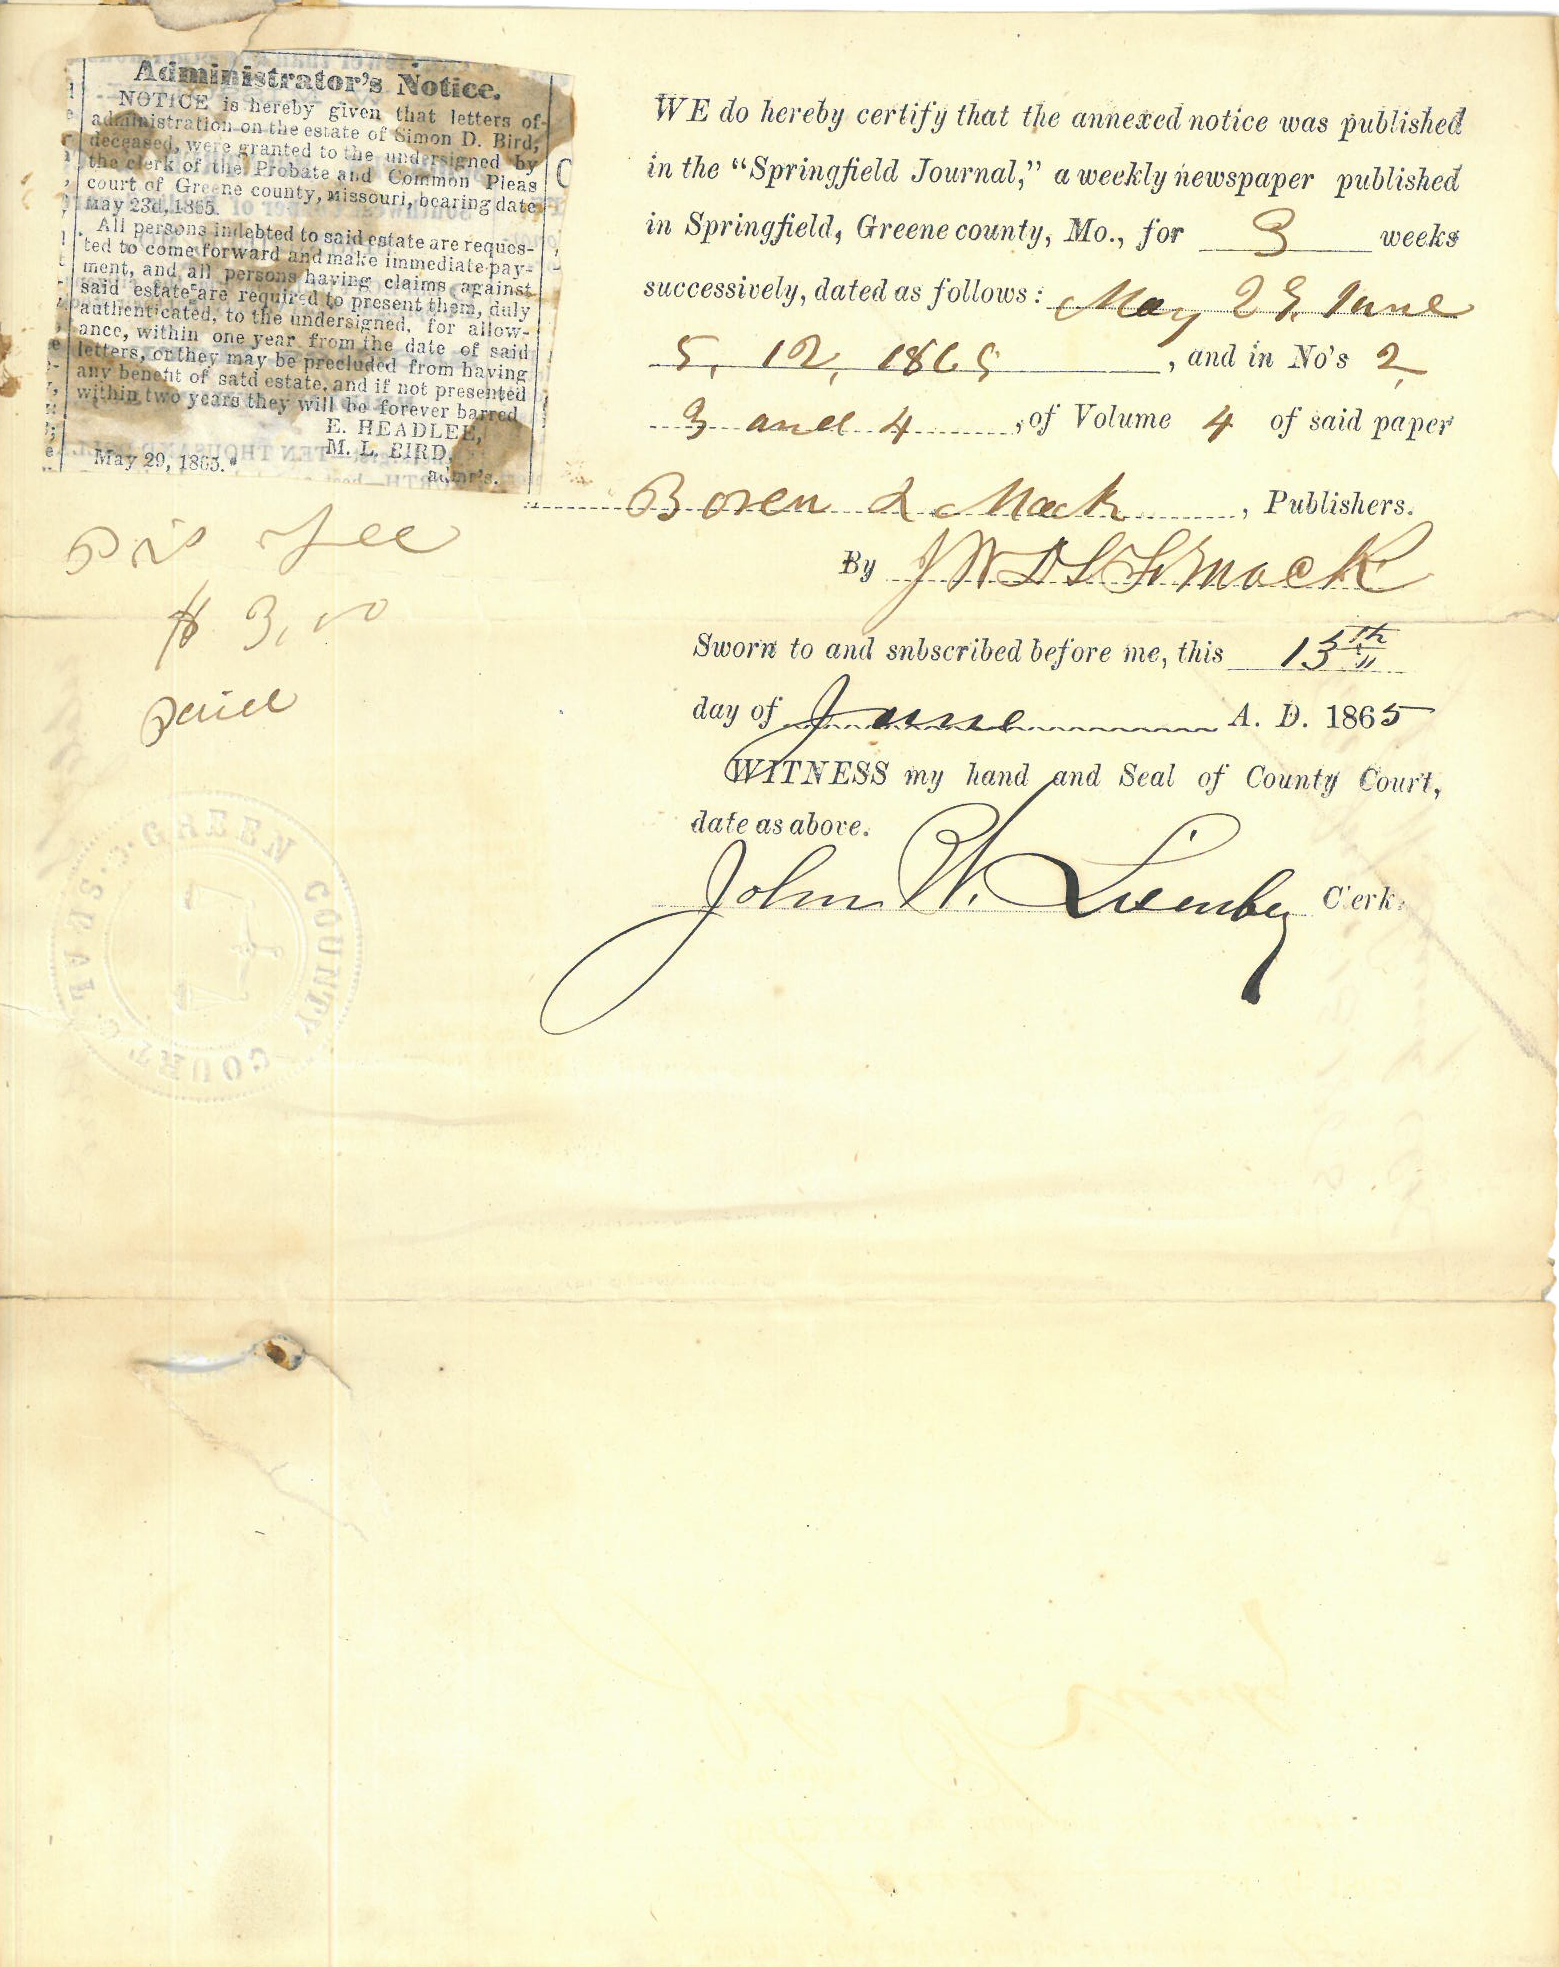 Administrator's Notice.
NOTICE is hereby given that letters of
administration on the estate of Simon D. Bird,
deceased, were granted to the undersigned by
the clerk of the Probate and Common Pleas
court of Greene county, Missouri, bearing date
May 23d, 1865.
All persons indebted to said estate are reques-
ted to come forward and make immediate pay-
ment, and all persons having claims against
said estate are required to present them, duly
authenticated, to the undersigned, for allow-
ance, within one year from the date of said
letters, or they may be precluded from having
any benefit of said estate, and if not presented
within two years they will be forever barred
E. HEADLEE,
M. L. BIRD,
May 29, 1865.* adm'r's.
Prs fee
$ 3,00
paid
WE do hereby certify that the annexed notice was published
in the "Springfield Journal," a weekly newspaper published
in Springfield, Greene county, Mo., for 3 weeks
successively, dated as follows: May 29, June
5, 12, 1865, and in No's 2,
3 and 4, of Volume 4 of said paper
Boren & Mack, Publishers.
By Mack
Sworn to and snbscribed before me, this 13th
day of June A. D. 1865
WITNESS my hand and Seal of County Court,
date as above.
John W. Lisenby Clerk.
GREEN COUNTY COURT SEAL